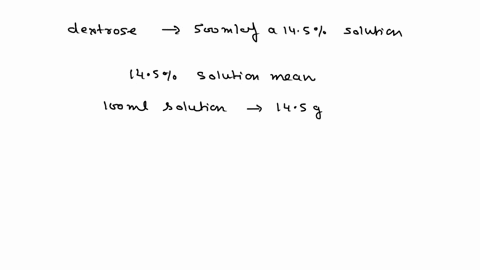 dextrose → 500ml of a 14.5% solution
14.5% solution mean
100ml solution → 14.5 g